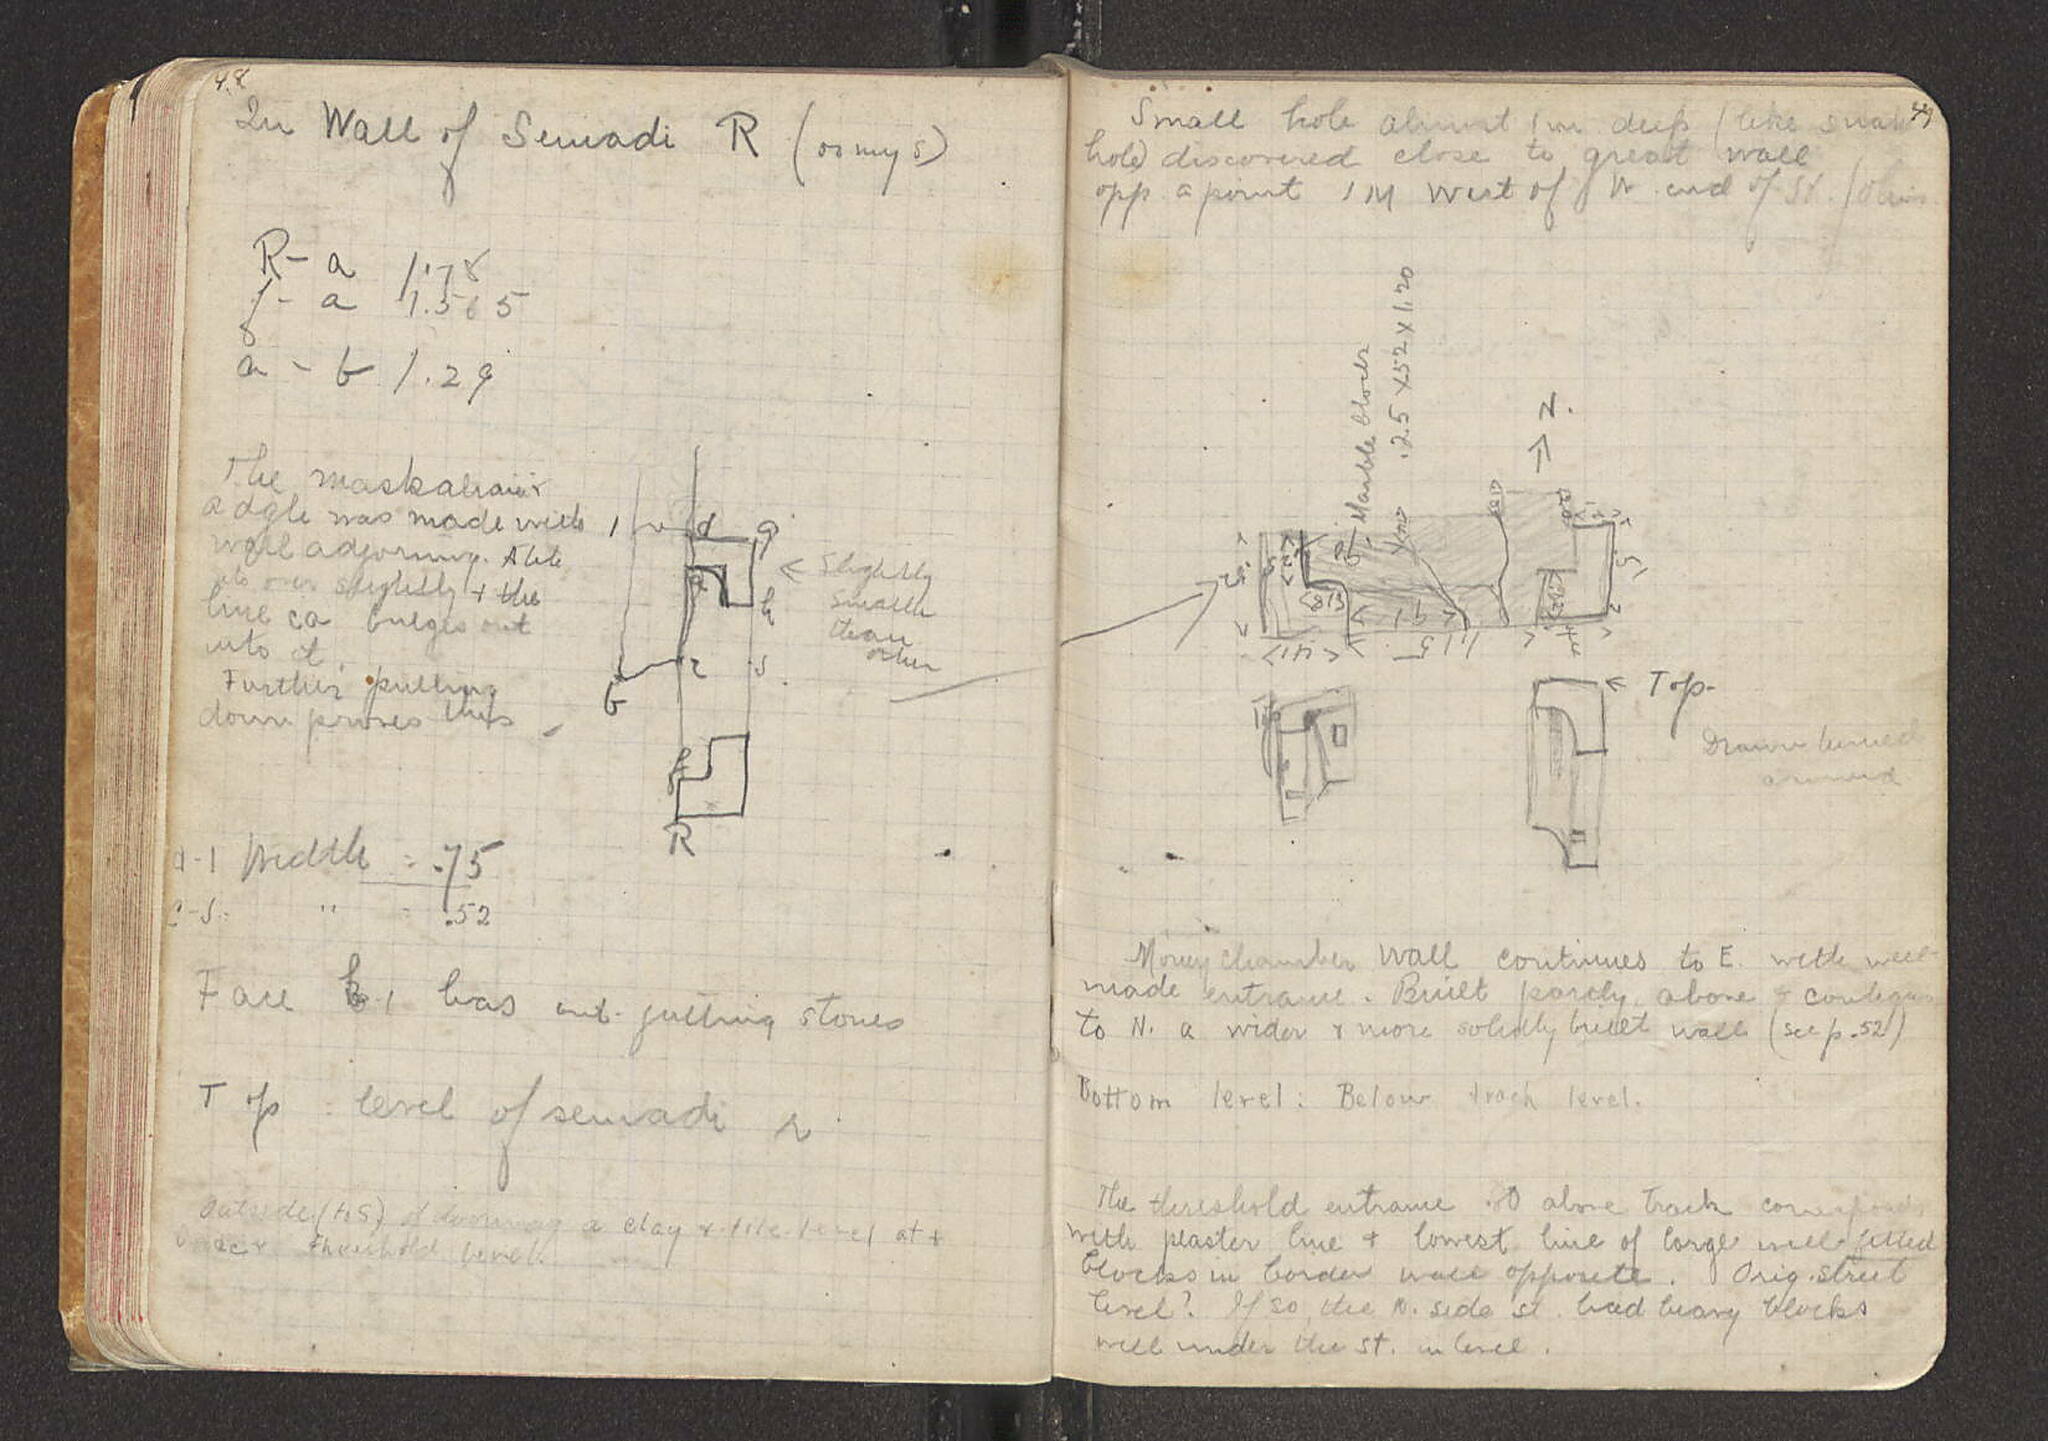 48
In Wall of Semadi R (or my s)
R - a 1.78
f - a 1.565
a - b 1.29
The
angle was made with
wall adjoining. A little
over slightly + the
line ca bulges out
into it.
Further pulling
down proves this -
1 d g
a h
← Slightly
smaller
than
other
b r s
f
R
d-1 Width = .75
" = .52
Face b-1 has out-jutting stones
Top level of semadi r
Outside (to S) of doorway a clay + tile level at +
threshold level.
49
Small hole almost 1 m deep (like snake
hole) discovered close to great wall
opp. a point 1 M West of W. end of St.
Marble block
.25 x .52 x 1.20
N.
1.15
Top
← Top
Drawn turned
around
Money chamber wall continues to E. with well
made entrance. Built partly above +
to N. a wider + more solidly built wall (see p. 52)
Bottom level: Below track level.
The threshold entrance above track corresponds
with plaster line + lowest line of large well fitted
blocks in border wall opposite. Orig. street
level? If so, the N. side st. had heavy blocks
well under the st. in level.